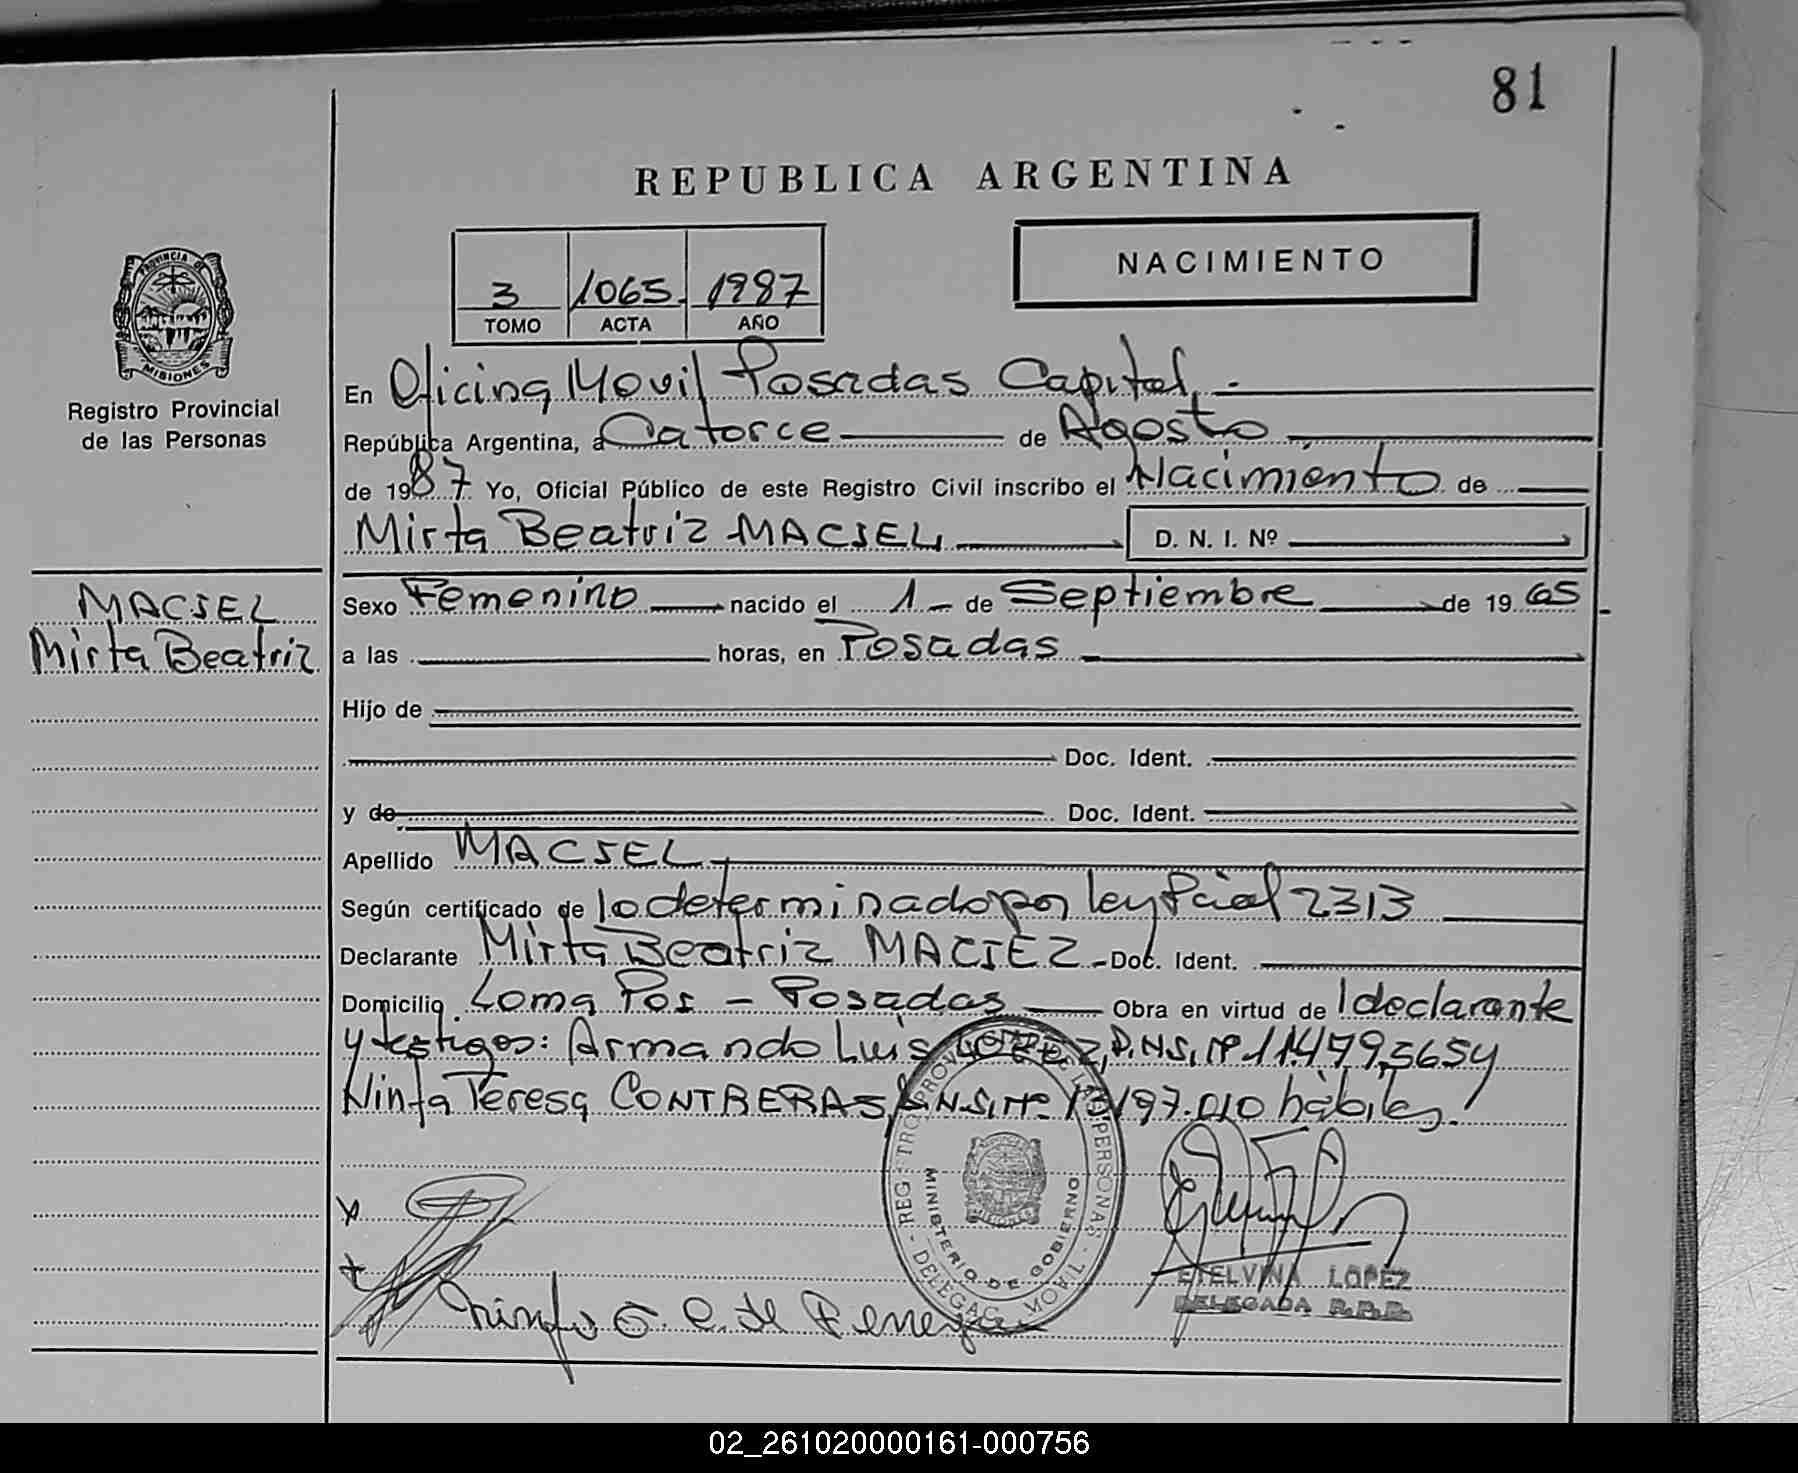 81
REPUBLICA ARGENTINA
3 1065 1987
TOMO ACTA AÑO
NACIMIENTO
PROVINCIA DE
MISIONES
Registro Provincial
de las Personas
MACIEL
Mirta Beatriz
En Oficina Movil Posadas Capital.-
República Argentina, a Catorce de Agosto
de 1987 Yo, Oficial Público de este Registro Civil inscribo el Nacimiento de
Mirta Beatriz MACIEL D. N. I. Nº
Sexo Femenino nacido el 1- de Septiembre de 1965
a las horas, en Posadas
Hijo de
Doc. Ident.
y de Doc. Ident.
Apellido MACIEL
Según certificado de lo determinado por ley Pcial 2313
Declarante Mirta Beatriz MACIEL - Doc. Ident.
Domicilio Loma Poi - Posadas Obra en virtud de l declarante
y testigos: Armando Luis LOPEZ, D.N.I. Nº 11.479.565 y
Ninfa Teresa CONTRERAS, D.N.I. Nº 13.197.010 hábiles.
REG TRO PROVINCIAL DE LAS PERSONAS
MINISTERIO DE GOBIERNO
DELEGAC. MOVIL
ETELVINA LOPEZ
DELEGADA R.P.P.
02_261020000161-000756